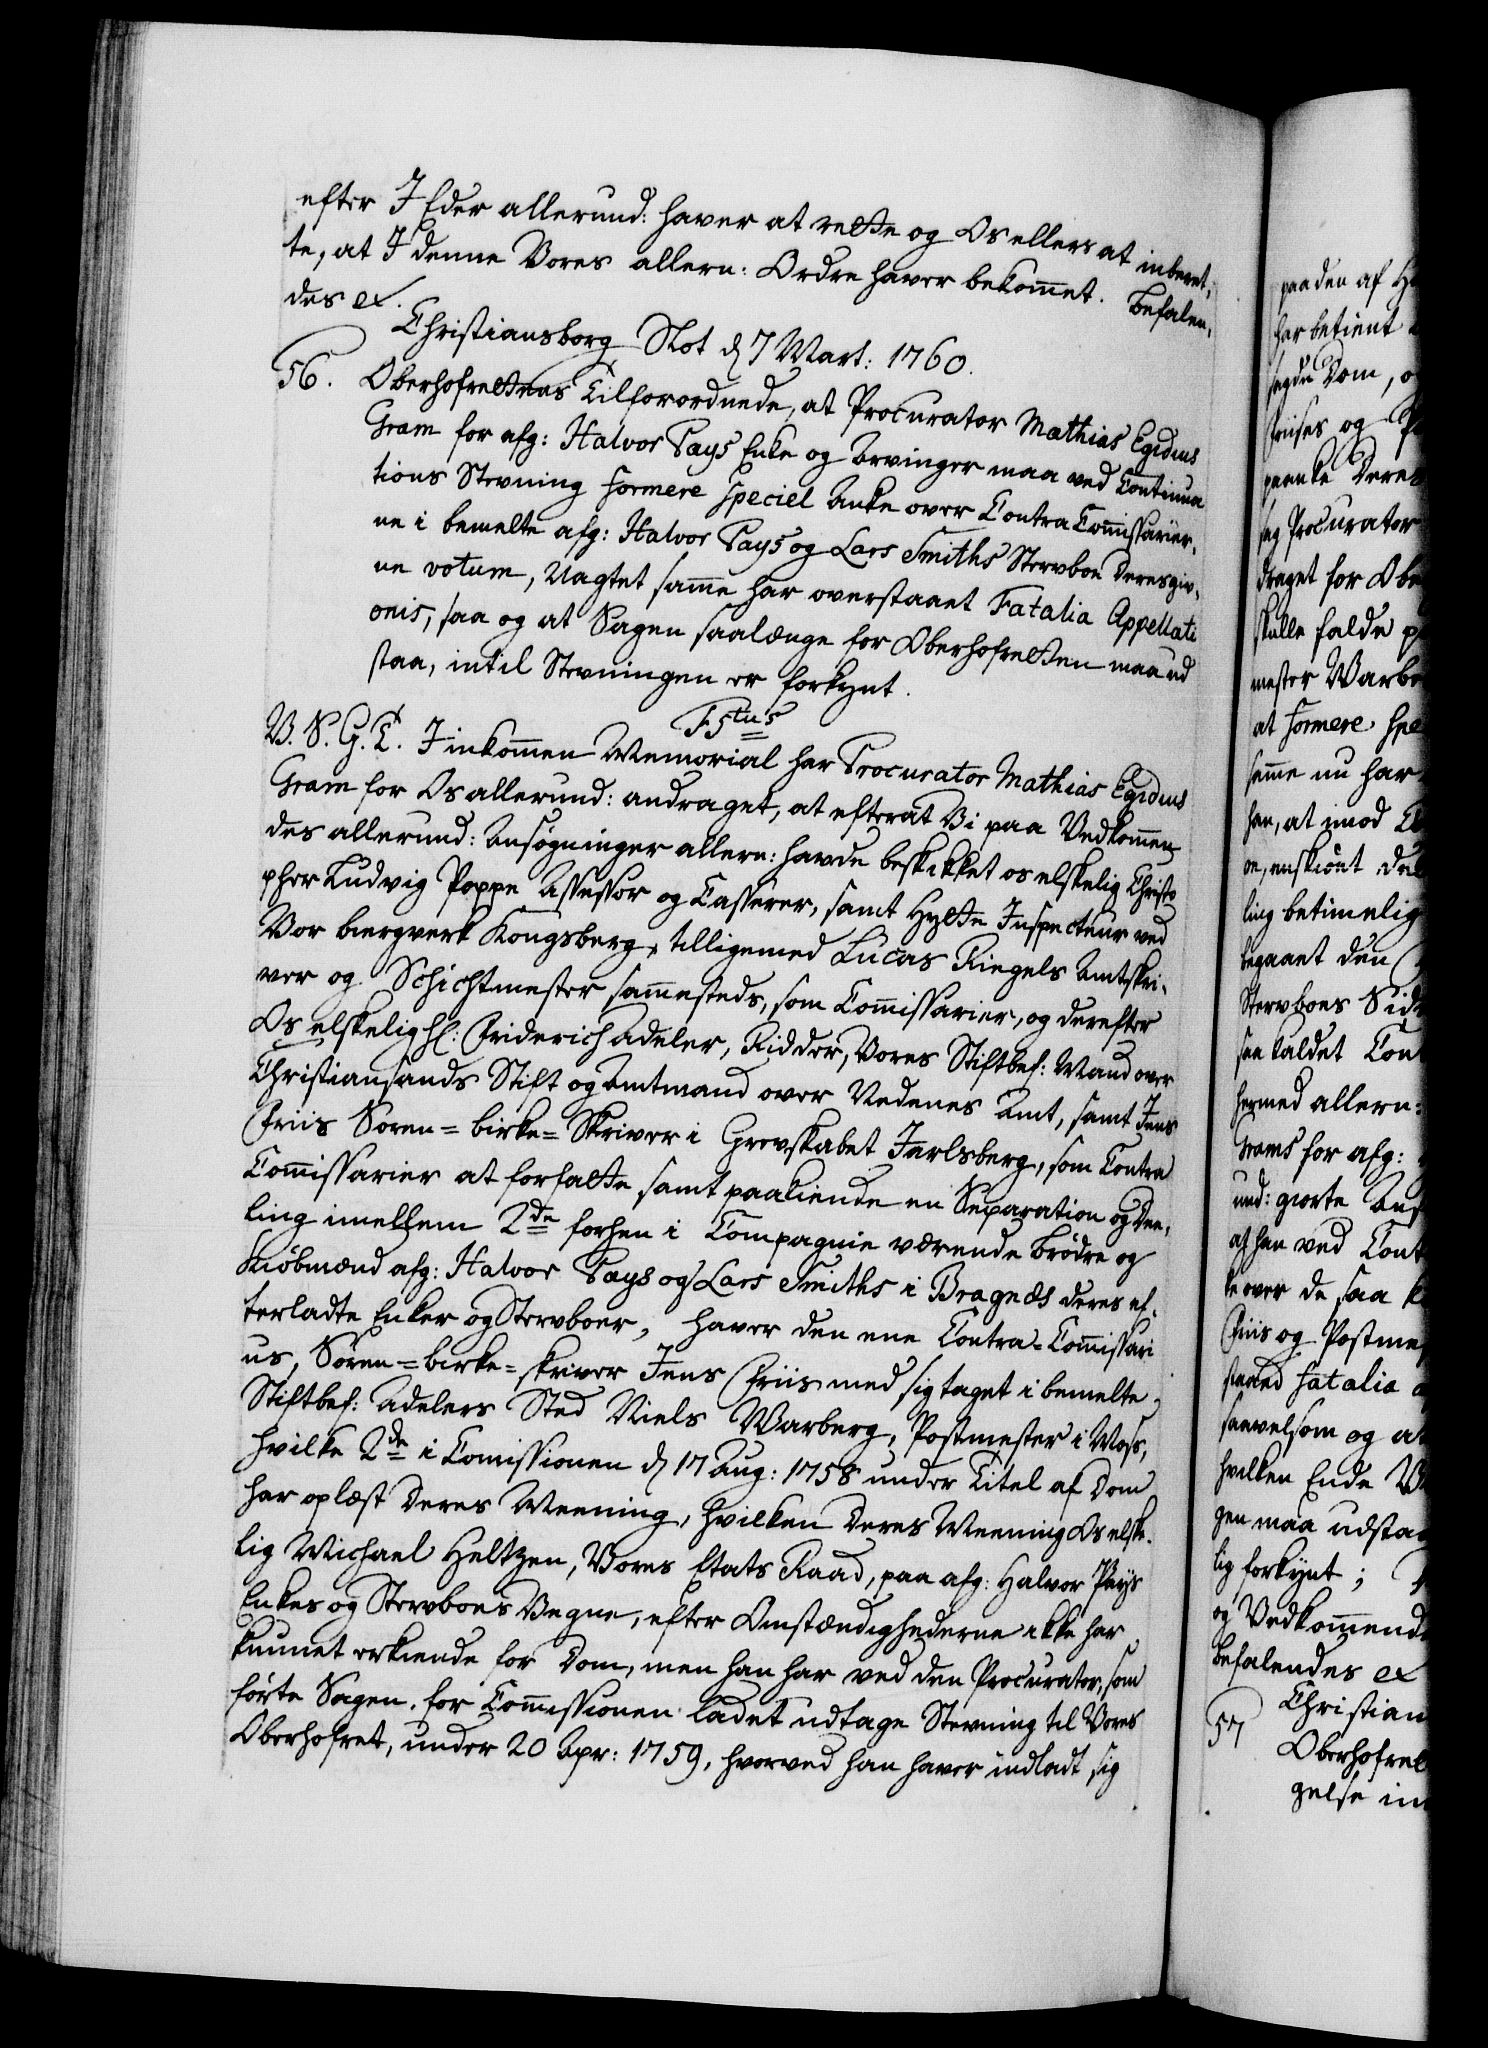 efter I Eder allerund: haver at rette og Os ellers at inberet,
te, at I denne Vores allern: Ordre haver bekommet. Befalen,
des ex.
Christiansborg Slot d 7 Mart: 1760.
56. Oberhofrettens Tilforordnede, at Procurator Mathias Egidius
Gram for afg: Halvor Pays Enke og Arvinger maa ved Continua
tions Stevning formere speciel Anke over Contra Commissarier,
ne i bemelte afg: Halvor Pays og Lars Smiths Stervboe deres giv,
ne votum, Uagtet samme har overstaaet Fatalia Appellati
onis, saa og at Sagen saalænge for Oberhofretten maa ud
staa, intil Stevningen er forkynt.
F5tus
V. S. G. T. I inkommen Memorial har Procurator Mathias Egidius
Gram for Os allerund: andraget, at efterat Vi paa Vedkommen
des allerund: Ansøgninger allern: havde beskikket os elskelig Christo
pher Ludvig Poppe Assessor og Casserer, samt Hytte Inspecteur ved
Vor bergverk Kongsberg, tilligemed Lucas Riegels Amtskri,
ver og Schichtmester sammesteds, som Commissarier, og derefter
Os elskelig H: Friderich Adeler, Ridder, Vores Stiftbef: Mand over
Christiansands Stift og Amtmand over Nedenes Amt, samt Jens
Friis Soren=birke=Skriver i Grevskabet Jarlsberg, som Contra
Commissarier at forfatte samt paakiende en Separation og Dee,
ling imellem 2de forhen i Compagnie værende brødre og
Kiøbmænd afg: Halvor Pays og Lars Smiths i Bragnæs deres ef,
terladte Enker og Stervboer, haver den ene Contra=Commissari
us, Søren=birke=skriver Jens Friis med sig taget i bemelte
Stiftbef: Adelers Sted Niels Warberg, Postmester i Moss,
hvilke 2de i Comissionen d 17 Aug: 1758 under Titel af Dom
har oplæst deres Meening, hvilken deres Meening Os elske,
lig Michael Heltzen, Vores Etats Raad, paa afg: Halvor Pays
Enkes og Stervboes Vegne, efter Omstændighederne ikke har
kunnet erkiende for Dom, men han har ved den Procurator, som
førte Sagen for Commissionen ladet udtage Stevning til Vores
Oberhofret, under 20 Apr: 1759, hvorved han haver indladt sig
paaden af
har betient
sagde Dom, o
Friises og
paanke deres
sag Procurator
draget for Obe
skulle falde p
mester Warbe
at formere spe
samme nu har
han, at imod
oe, enskiønt
ling betimelig
begaaet den
Stervboes Sid
saa kaldet Con
hermed allern:
Grams for afg:
und: giorte Ans
at han ved Cont
ke over de saa k
Friis og Postme
staaed fatalia a
saavelsom og at
hvilken Ende V
gen maa udsta
lig forkynt;
og Vedkommend
befalendes ex
Christian
57
Oberhofret
gelse im